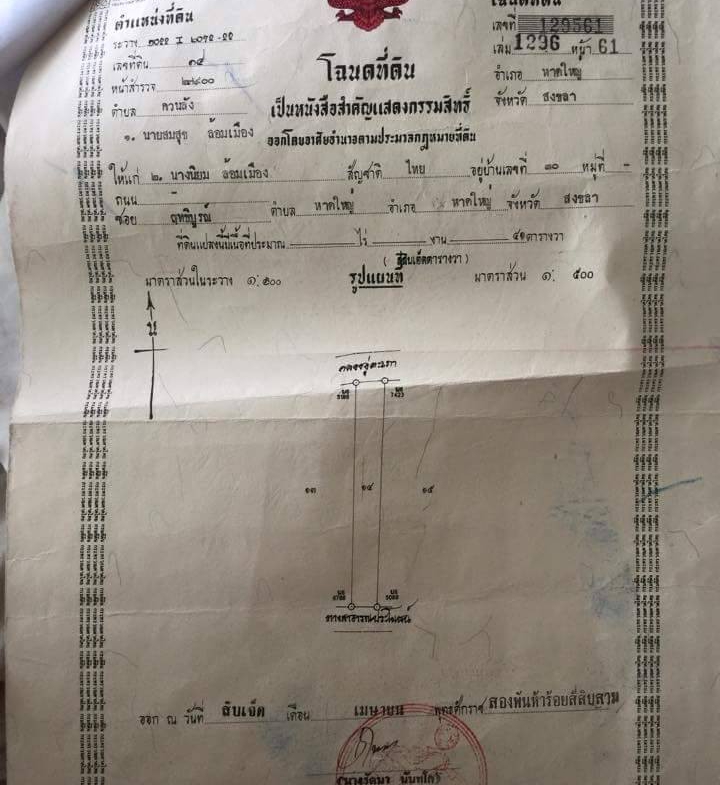 ตำแหน่งที่ดิน
ระวาง
เลขที่ดิน ๑๔
หน้าสำรวจ
ตำบล ควนลัง
โฉนดที่ดิน
เลขที่ 129561
เล่ม 1296 หน้า 61
อำเภอ หาดใหญ่
จังหวัด สงขลา
โฉนดที่ดิน
เป็นหนังสือสำคัญแสดงกรรมสิทธิ์
ออกโดยอาศัยอำนาจตามประมวลกฎหมายที่ดิน
๑. นายสมสุข ล้อมเมือง
ให้แก่ ๒. นางนิยม ล้อมเมือง สัญชาติ ไทย อยู่บ้านเลขที่ ๓๐ หมู่ที่ -
ถนน -
ซอย ตำบล หาดใหญ่ อำเภอ หาดใหญ่ จังหวัด สงขลา
ที่ดินแปลงนี้มีเนื้อที่ประมาณ ไร่ งาน ๔๑ ตารางวา
( สี่สิบเอ็ดตารางวา )
มาตราส่วนในระวาง ๑: รูปแผนที่ มาตราส่วน ๑: ๕๐๐
น
คลองอู่ตะเภา
นธ
นธ
7423
๑๓ ๑๔ ๑๕
นธ
นธ
ทางสาธารณประโยชน์
ออก ณ วันที่ สิบเจ็ด เดือน เมษายน พุทธศักราช สองพันห้าร้อยสี่สิบสาม
(นางรัตนา นันทโก)